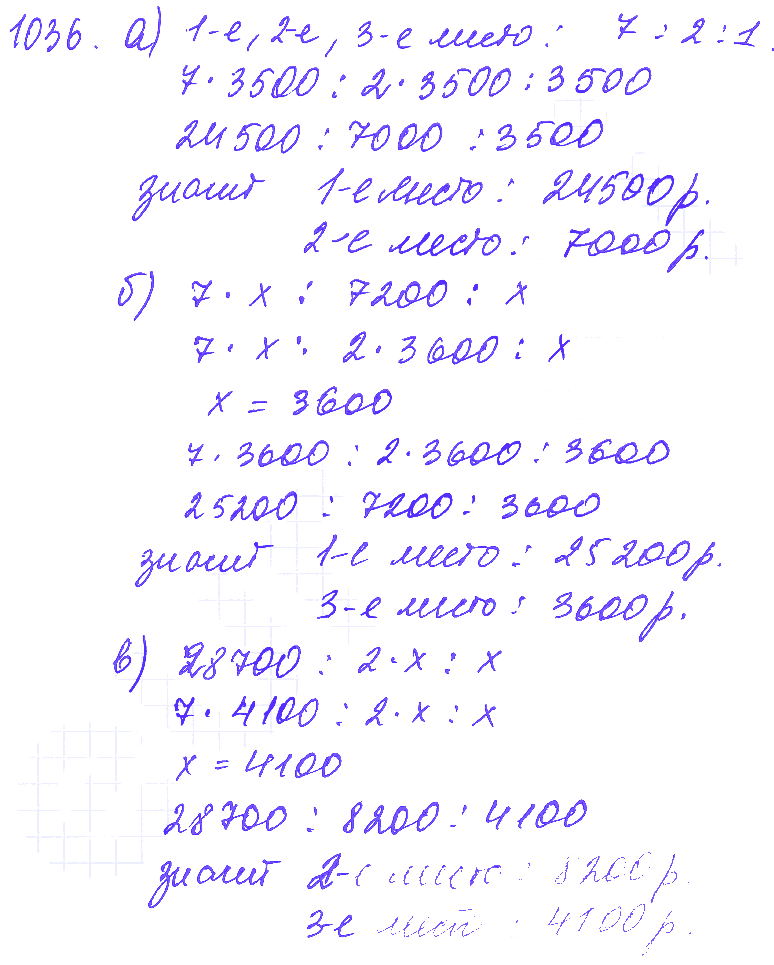 1036. а) 1-е, 2-е, 3-е место: 7 : 2 : 1.
7·3500 : 2·3500 : 3500
24500 : 7000 : 3500
значит 1-е место: 24500р.
2-е место: 7000р.
б) 7·x : 7200 : x
7·x : 2·3600 : x
x = 3600
7·3600 : 2·3600 : 3600
25200 : 7200 : 3600
значит 1-е место: 25200р.
3-е место: 3600р.
в) 28700 : 2·x : x
7·4100 : 2·x : x
x = 4100
28700 : 8200 : 4100
значит 2-е место: 8200р.
3-е место: 4100р.